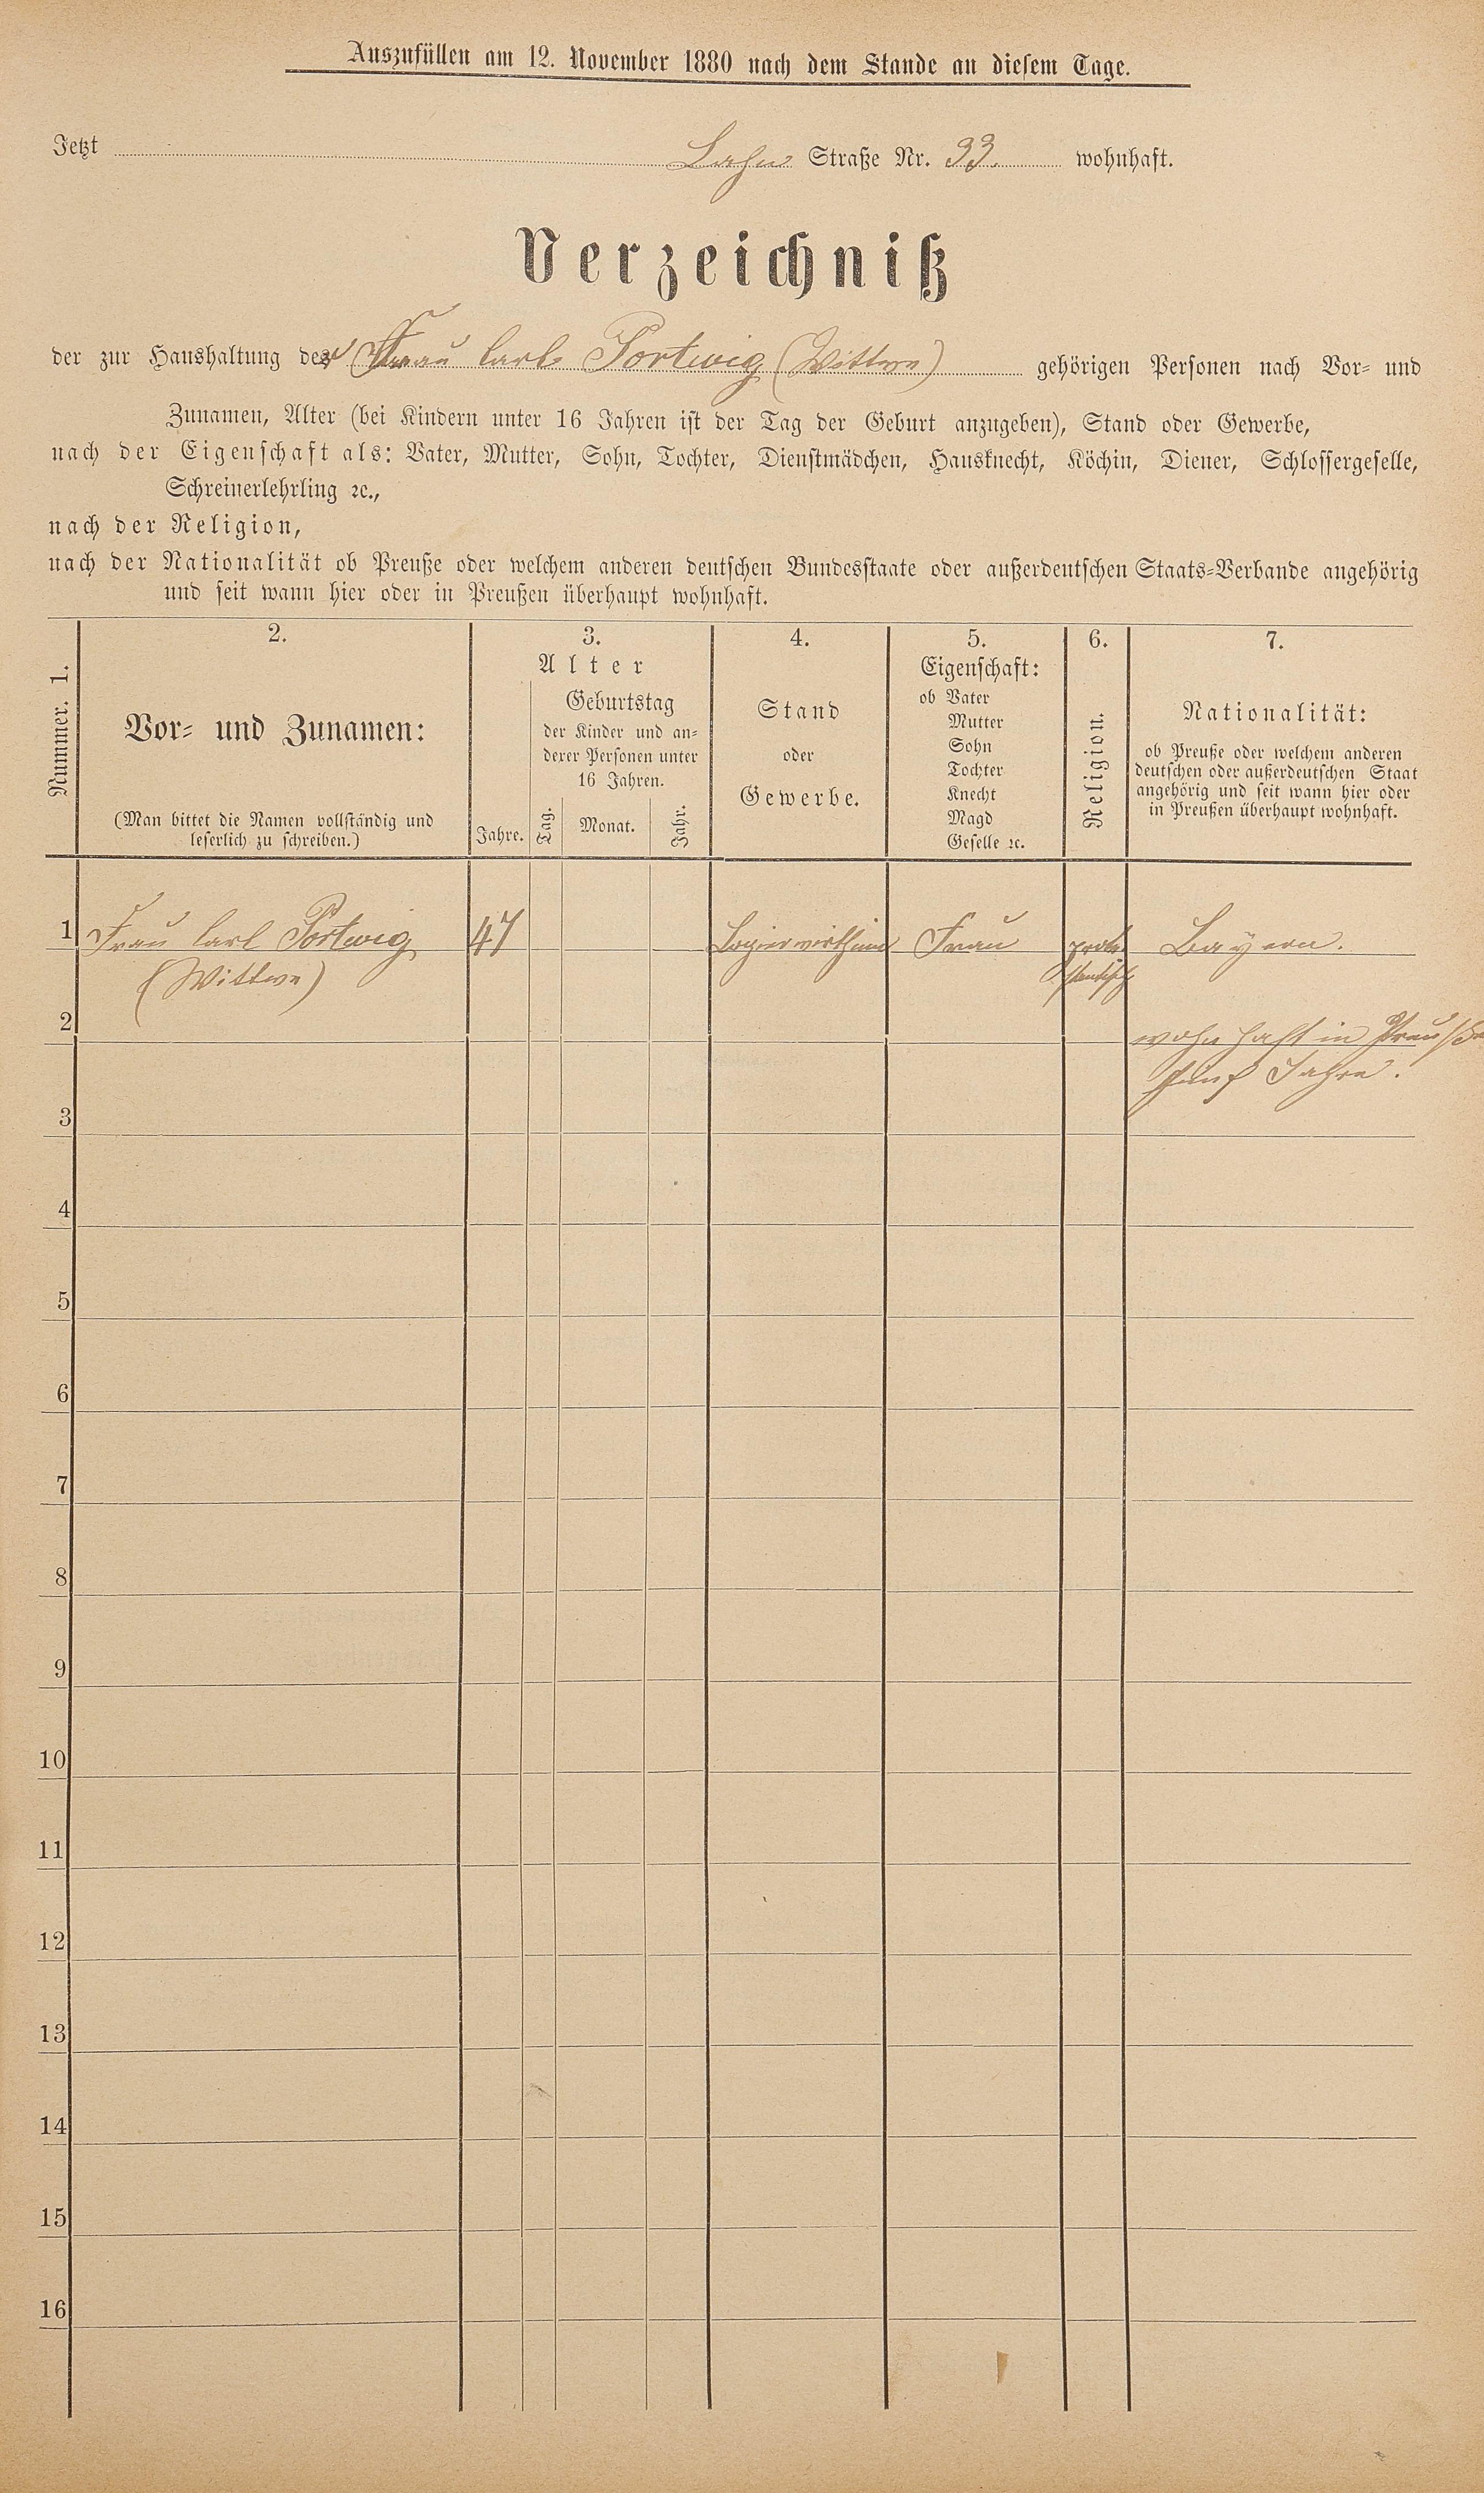 Auszufüllen am 12. November 1880 nach dem Stande an diesem Tage.
Jetzt Bahn Straße Nr. 33. wohnhaft.
Verzeichniß
der zur Haushaltung der Frau Carl Portwig (Wittwe) gehörigen Personen nach Vor- und
Zunamen, Alter (bei Kindern unter 16 Jahren ist der Tag der Geburt anzugeben), Stand oder Gewerbe,
nach der Eigenschaft als: Vater, Mutter, Sohn, Tochter, Dienstmädchen, Hausknecht, Köchin, Diener, Schlossergeselle,
Schreinerlehrling ꝛc.,
nach der Religion,
nach der Nationalität ob Preuße oder welchem anderen deutschen Bundesstaate oder außerdeutschen Staats-Verbande angehörig
und seit wann hier oder in Preußen überhaupt wohnhaft.
Nummer. 1.
2.
Vor- und Zunamen:
(Man bittet die Namen vollständig und
leserlich zu schreiben.)
3.
Alter
Jahre.
Geburtstag
der Kinder und an-
derer Personen unter
16 Jahren.
Tag.
Monat.
Jahr.
4.
Stand
oder
Gewerbe.
5.
Eigenschaft:
ob Vater
Mutter
Sohn
Tochter
Knecht
Magd
Geselle ꝛc.
6.
Religion.
7.
Nationalität:
ob Preuße oder welchem anderen
deutschen oder außerdeutschen Staat
angehörig und seit wann hier oder
in Preußen überhaupt wohnhaft.
1 Frau Carl Portwig 47 Logierwirthin Frau prote- Bayern.
(Wittwe) stantisch
2
wohnhaft in Preußen
fünf Jahre.
3
4
5
6
7
8
9
10
11
12
13
14
15
16